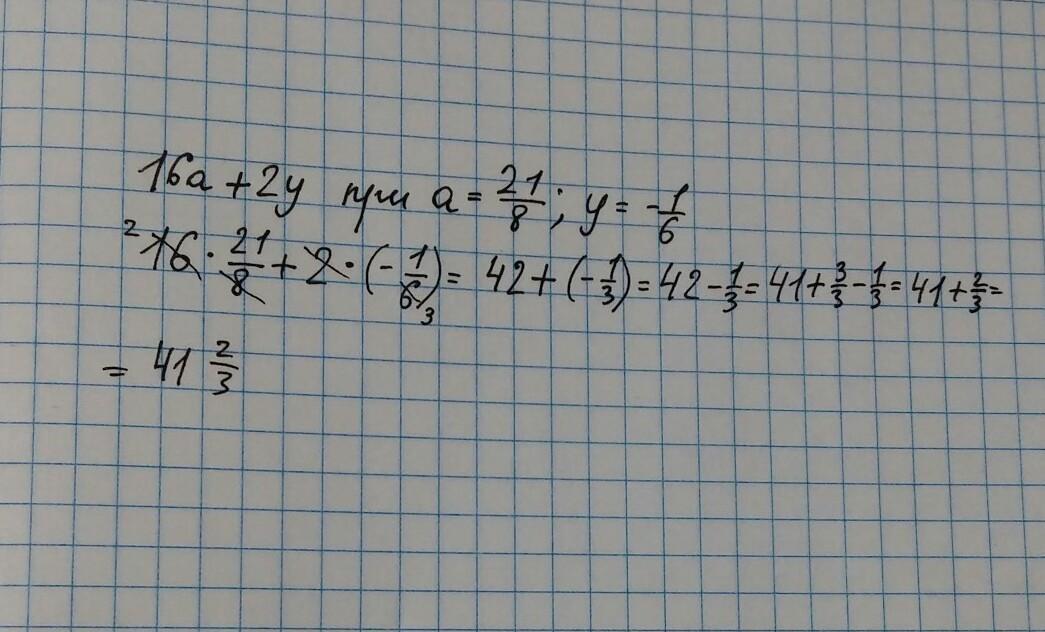 16a + 2y при a = 21/8; y = -1/6
²16 · 21/8 + 2 · (-1/6₃) = 42 + (-1/3) = 42 - 1/3 = 41 + 3/3 - 1/3 = 41 + 2/3 =
= 41 2/3